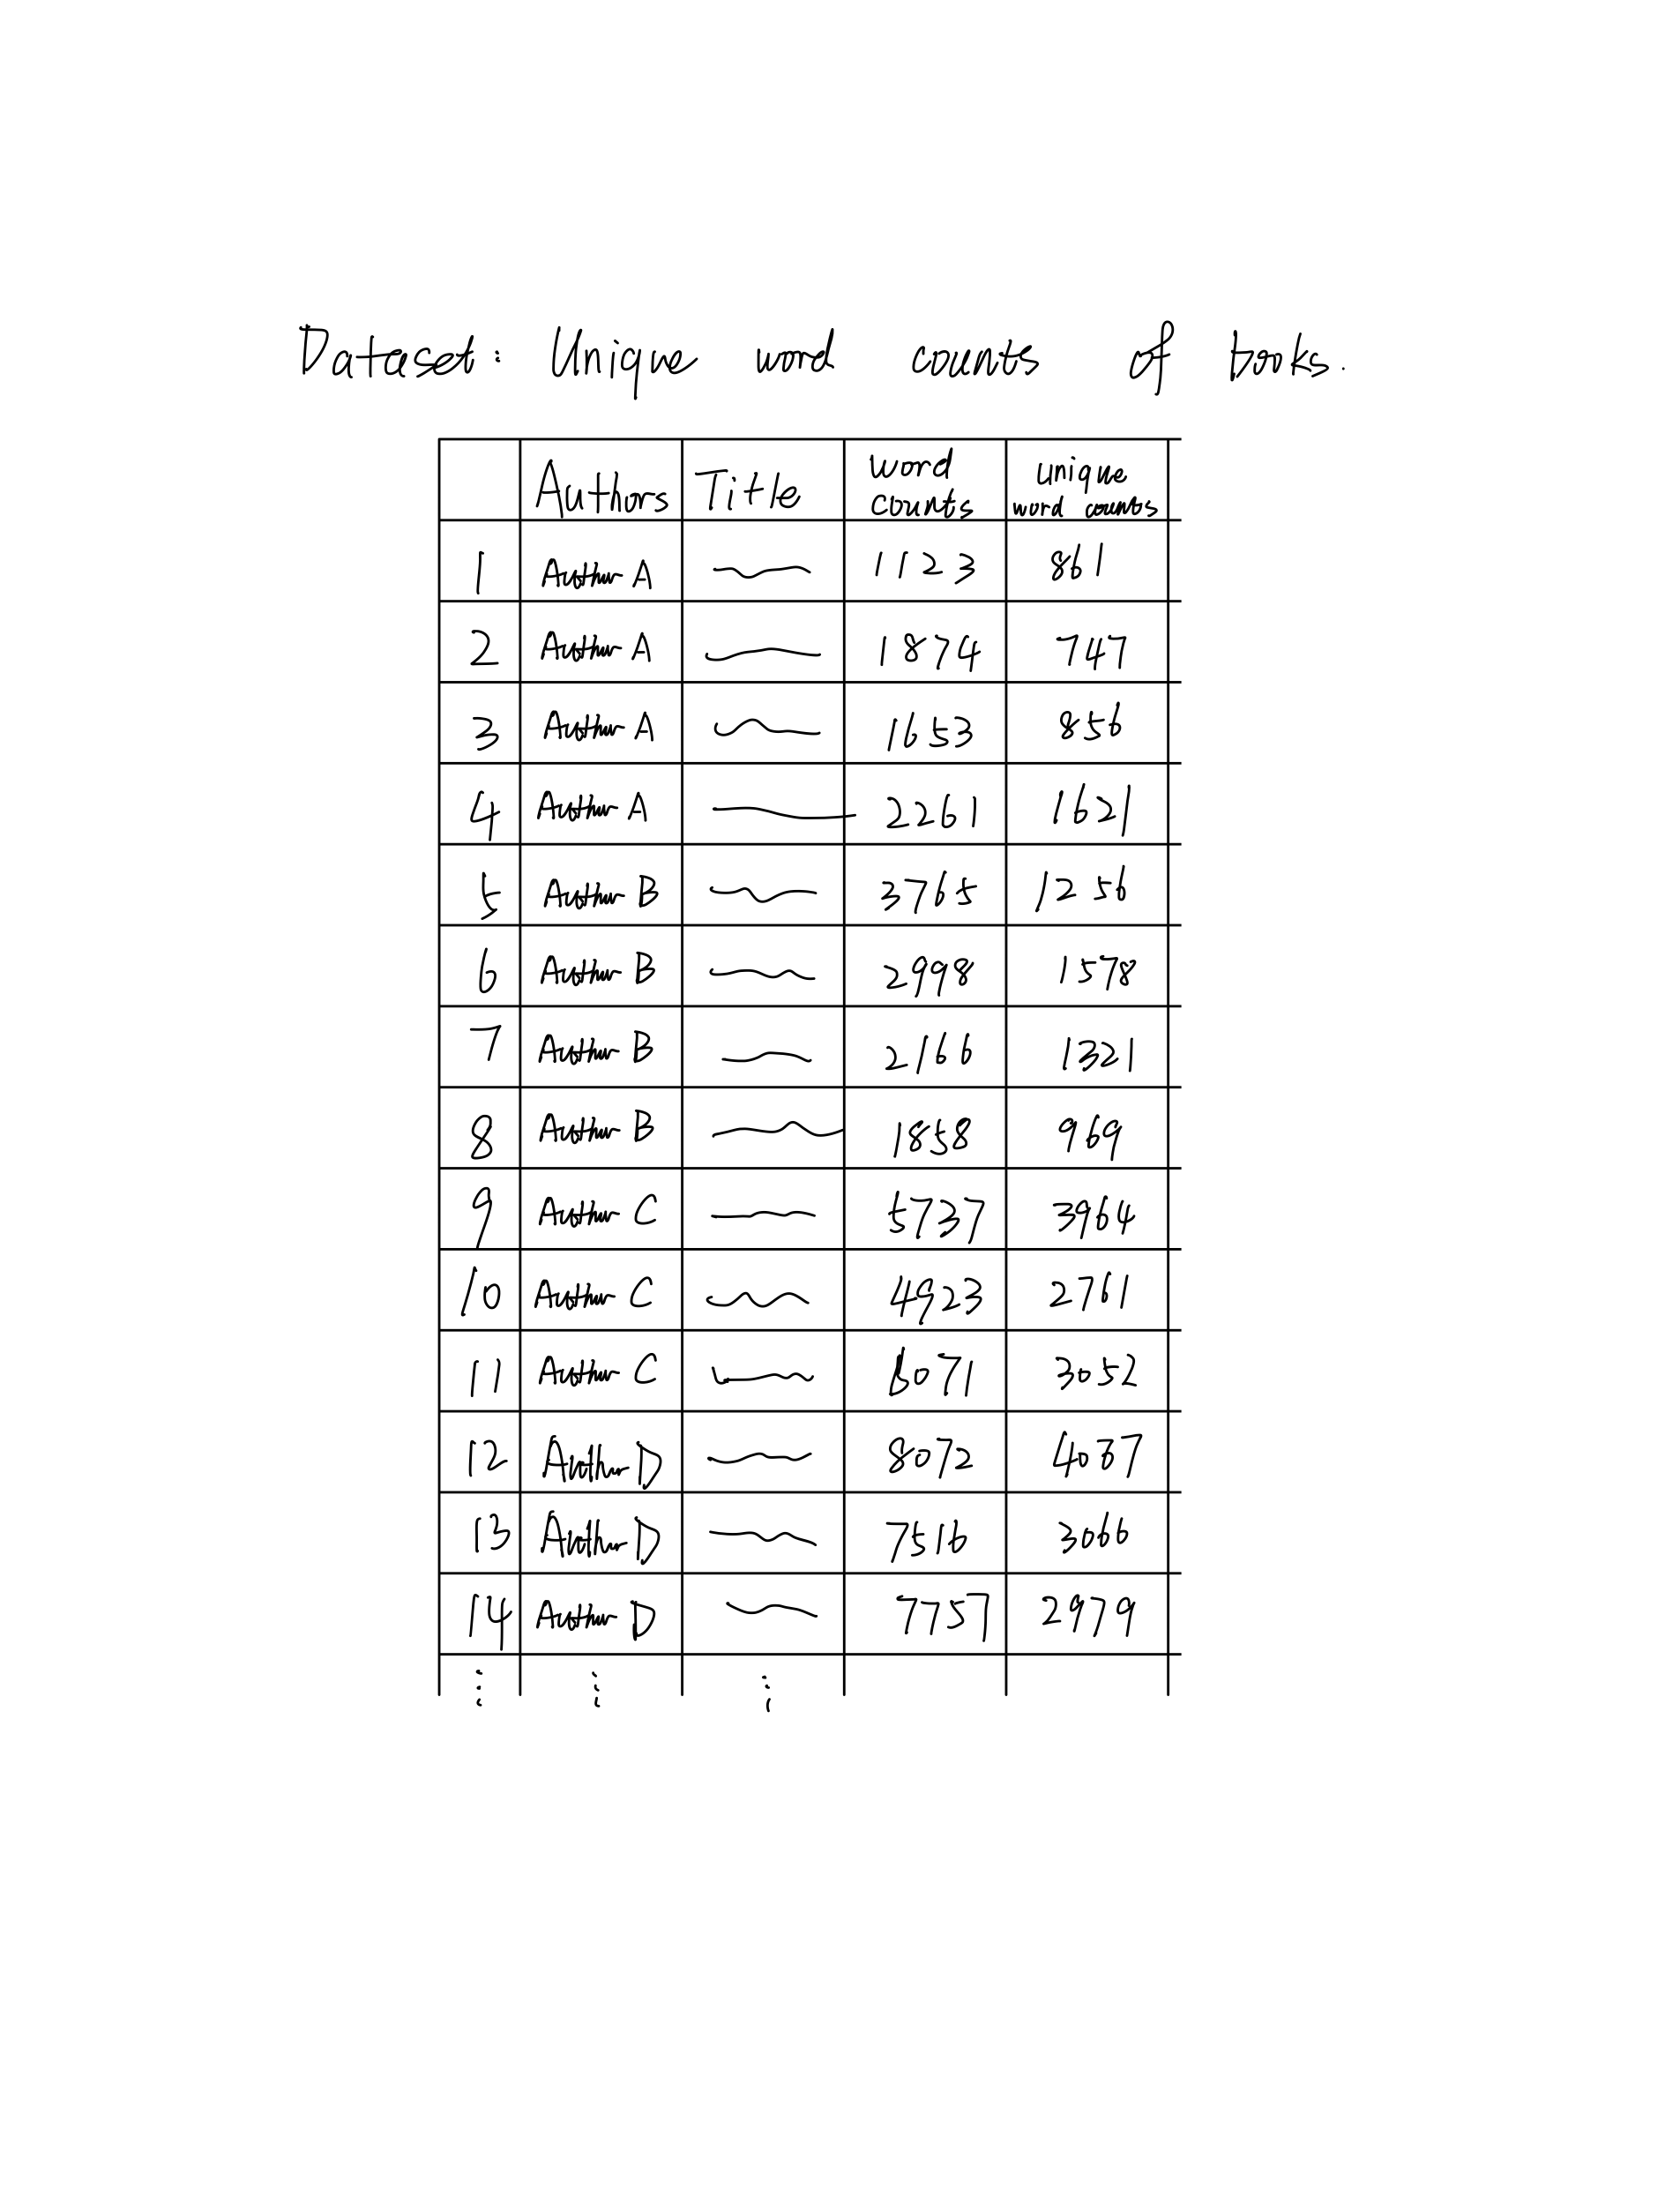 Dataset: Unique word counts of books.
Authors Title word counts unique word counts
1 Author A 1123 861
2 Author A 1874 747
3 Author A 1653 856
4 Author A 2261 1621
5 Author B 3765 1256
6 Author B 2998 1578
7 Author B 2166 1321
8 Author B 1858 969
9 Author C 5737 3964
10 Author C 4923 2761
11 Author C 6071 3052
12 Author D 8072
13 Author D 7516 3066
14 Author D 7757 2979